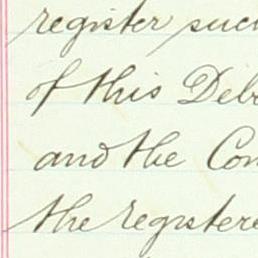 register such
of this Deb
and the Com
the registere